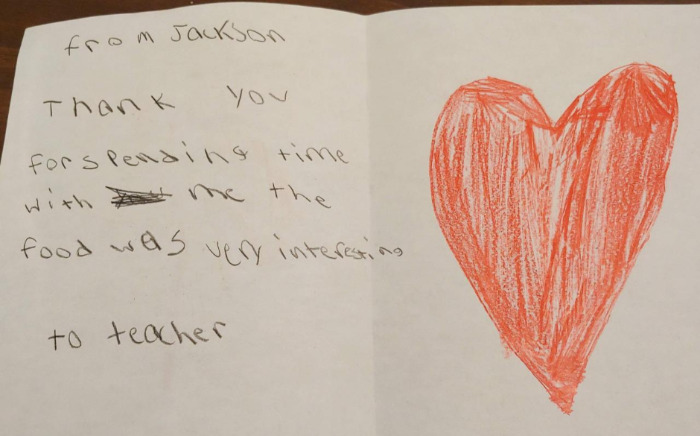 from Jackson
Thank you
for spending time
with me the
food was very interesting
to teacher